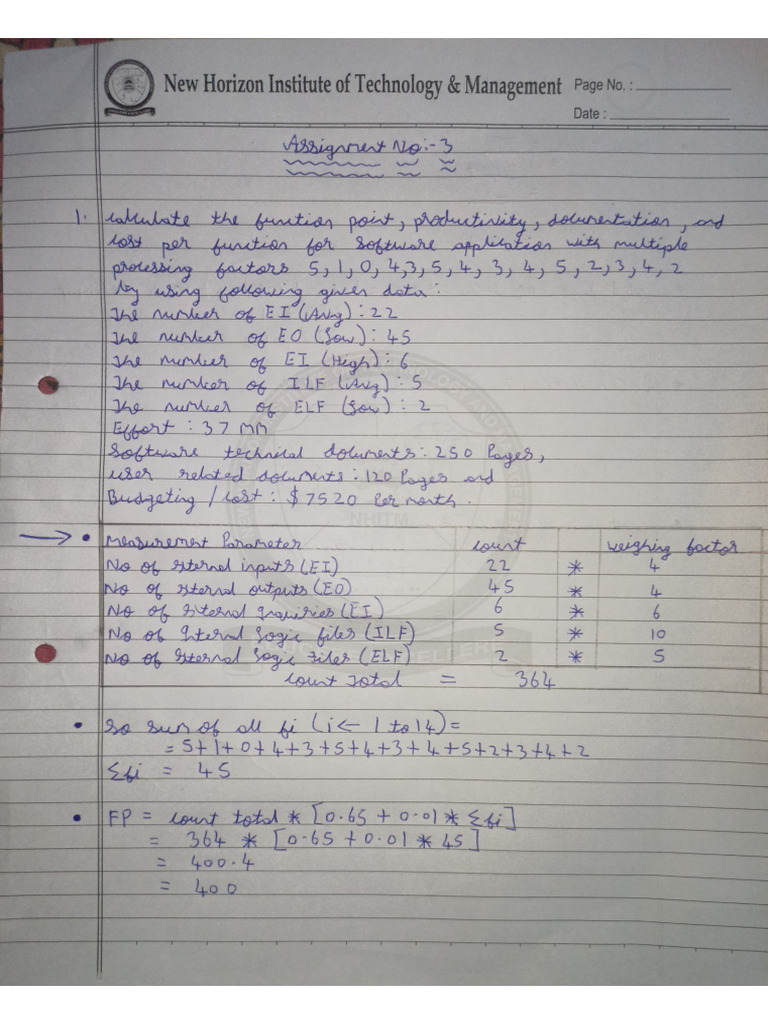 New Horizon Institute of Technology & Management Page No. :
Date :
Assignment No:- 3
1. calculate the function point, productivity, documentation, and
cost per function for software application with multiple
processing factors 5, 1, 0, 4, 3, 5, 4, 3, 4, 5, 2, 3, 4, 2
by using following given data:
The number of EI (Avg) : 22
The number of EO (Low) : 45
The number of EI (High) : 6
The number of ILF (Avg) : 5
The number of ELF (Low) : 2
Effort : 37 MM
Software technical documents : 250 Pages,
user related documents : 120 Pages and
Budgeting / cost : $ 7520 Per month.
→ • Measurement Parameter count weighing factor
No of external inputs (EI) 22 * 4
No of external outputs (EO) 45 * 4
No of external inquiries (EI) 6 * 6
No of Internal Logic files (ILF) 5 * 10
No of External Logic Files (ELF) 2 * 5
count total = 364
• So sum of all fi (i ← 1 to 14) =
= 5+1+0+4+3+5+4+3+4+5+2+3+4+2
Σfi = 45
• FP = count total * [0.65 + 0.01 * Σfi]
= 364 * [0.65 + 0.01 * 45]
= 400.4
= 400
NHITM